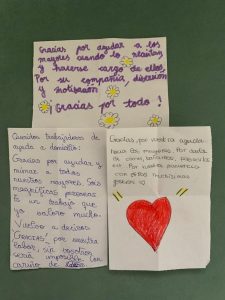 Gracias por ayudar a los
mayores cuando lo necesitan
y hacerse cargo de ellos,
Por su compañía, diversión
y motivación,
¡Gracias por todo!
Queridos trabajadores de
ayuda a domicilio:
Gracias por ayudar y
mimar a todos
nuestros mayores. Sois
magníficas personas
Es un trabajo que
yo valoro mucho.
Vuelvo a deciros
GRACIAS, por vuestra
labor, sin vosotros
sería imposible. Con
cariño de
Gracias, por vuestra ayuda
hacia los mayores. Por
de comer,
Por vuestra paciencia
con ellos muchísimas
gracias